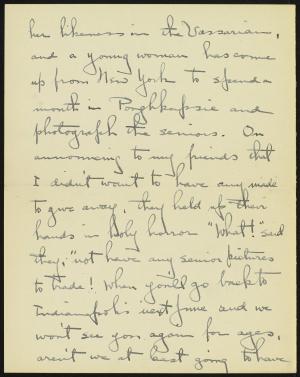 her likeness in the Vassarian,
and a young woman has come
up from New York to spend a
month in Poughkeepsie and
photograph the seniors. On
announcing to my friends that
I didn't want to have any made
to give away, they held up their
hands in holy horror "What!" said
they, "not have any senior pictures
to trade! When you'll go back to
Indianapolis next June and we
won't see you again for ages,
aren't we at least going to have